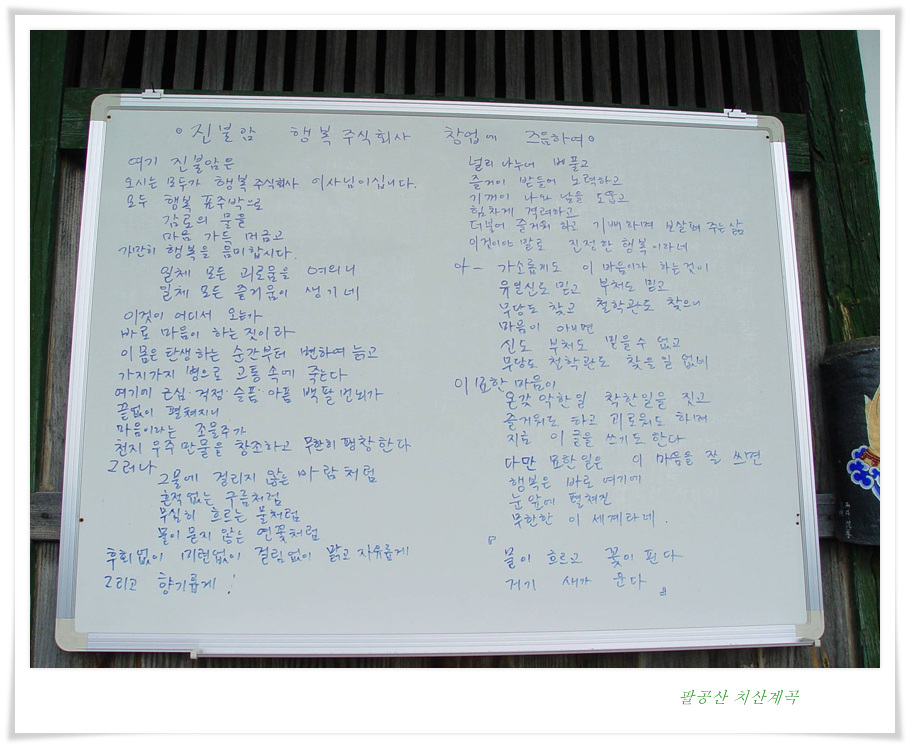 진불암 행복 주식회사 창업에 즈음하여
여기 진불암은
오시는 모두가 행복 주식회사 이사님이십니다.
모두 행복 표주박으로
감로의 물을
마음 가득 머금고
가만히 행복을 음미합시다.
일체 모든 괴로움을 여의니
일체 모든 즐거움이 생기네
이것이 어디서 오는가
바로 마음이 하는 짓이라
이 몸은 탄생하는 순간부터 변하여 늙고
가지가지 병으로 고통 속에 죽는다
여기에 근심·걱정·슬픔·아픔 백팔번뇌가
끝없이 펼쳐지니
마음이라는 조물주가
천지 우주 만물을 창조하고 무한히 팽창한다
그러나
그물에 걸리지 않는 바람처럼
흔적없는 구름처럼
무심히 흐르는 물처럼
물이 묻지 않는 연꽃처럼
후회없이 미련없이 걸림없이 맑고 자유롭게
그리고 향기롭게!
널리 나누어 베풀고
즐거이 받들어 노력하고
기꺼이 나와 남을 도웁고
힘차게 격려하고
더불어 즐거워 하고 기뻐하며 보살펴 주는 삶
이것이야 말로 진정한 행복이라네
아- 가소롭게도 이 마음이라 하는것이
유일신도 믿고 부처도 믿고
무당도 찾고 철학관도 찾으니
마음이 아니면
신도 부처도 믿을 수 없고
무당도 철학관도 찾을 일 없네
이 묘한 마음이
온갖 악한일 착한일을 짓고
즐거워도 하고 괴로워도 하며
지금 이 글을 쓰기도 한다
다만 묘한 일은 이 마음을 잘 쓰면
행복은 바로 여기에
눈 앞에 펼쳐진
무한한 이 세계라네.
『 물이 흐르고 꽃이 핀다
저기 새가 운다 』
팔공산 치산계곡